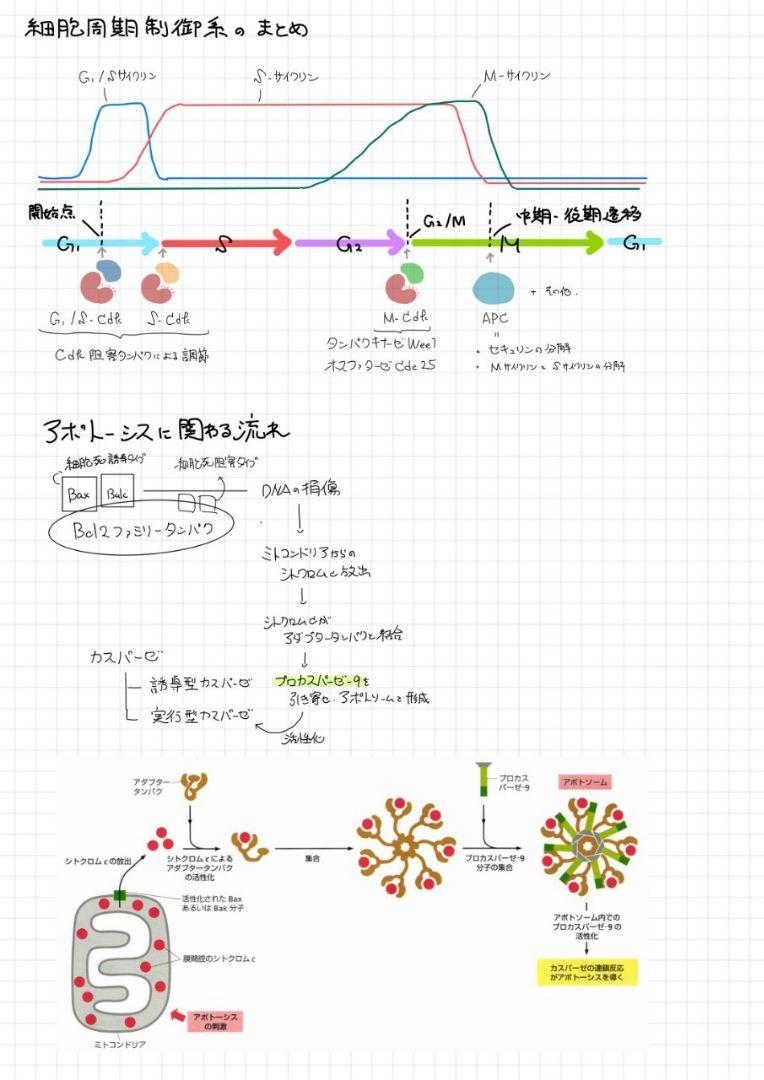 細胞周期制御系のまとめ
G₁/Sサイクリン
S-サイクリン
M-サイクリン
開始点
G₂/M
中期-後期遷移
G₁
S
G₂
M
G₁
G₁/S-Cdk
S-Cdk
M-Cdk
APC
+ その他.
Cdk阻害タンパクによる調節
タンパクキナーゼWee1
ホスファターゼCdc25
=
・セキュリンの分解
・MサイクリンとSサイクリンの分解
アポトーシスに関わる流れ
細胞死誘導タイプ
細胞死阻害タイプ
Bax
Bak
DNAの損傷
Bcl2ファミリータンパク
ミトコンドリアからの
シトクロムc放出
シトクロムcが
アダプタータンパクと結合
カスパーゼ
誘導型カスパーゼ
プロカスパーゼ-9を
引き寄せ.アポトソームを形成
実行型カスパーゼ
活性化
アダプター
タンパク
プロカス
パーゼ-9
アポトソーム
シトクロムcの放出
シトクロムcによる
アダプタータンパク
の活性化
集合
プロカスパーゼ-9
分子の集合
活性化されたBax
あるいはBak分子
アポトソーム内での
プロカスパーゼ-9の
活性化
膜間腔のシトクロムc
カスパーゼの連鎖反応
がアポトーシスを導く
アポトーシス
の刺激
ミトコンドリア